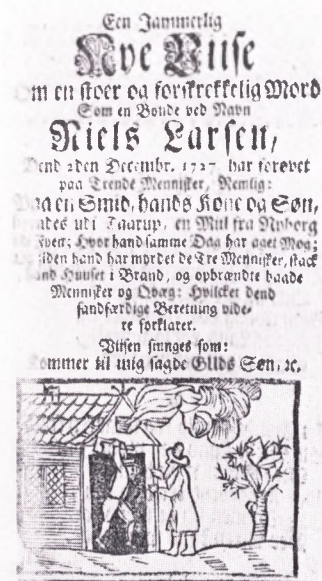 Een Jammerlig
Nye Viise
om en stoer og forskrekkelig Mord
Som en Bonde ved Navn
Niels Larsen,
Dend 2den Decembr. 1727 har forøvet
paa Trende Mennisker, Nemlig:
Paa en Smid, hands Kone og Søn,
udi Taarup, en Mul fra Nyborg
Fyen; Hvor hand samme Dag har aget Møg;
Siden hand har myrdet de Tre Mennisker, stack
hand Huuset i Brand, og opbrændte baade
Mennisker og Qvæg: Hvilcket dend
sandfærdige Beretning vide-
re forklarer.
Viisen siunges som:
Kommer til mig sagde Guds Søn, ꝛc.